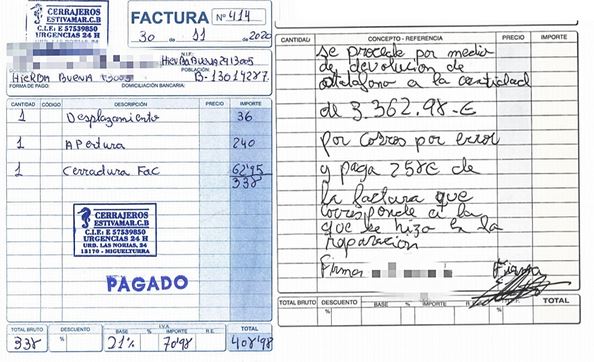 CERRAJEROS
ESTIVAMAR.C.B
C.I.F: E 57539850
URGENCIAS 24 H
FACTURA Nº 414
30 - 11 - 2020
N.I.F.
HIERBABUENA
POBLACIÓN
HIERBA BUENA
B-13014287
FORMA DE PAGO:
DOMICILIACIÓN BANCARIA:
CANTIDAD CÓDIGO DESCRIPCIÓN PRECIO IMPORTE
1 Desplazamiento 36
1 APertura 240
1 Cerradura Fac 62'95
338
CERRAJEROS
ESTIVAMAR.C.B
C.I.F: E 57539850
URGENCIAS 24 H
URD. LAS NORIAS, 54
13170 - MIGUELTURRA
PAGADO
TOTAL BRUTO DESCUENTO % BASE I.V.A. % IMPORTE R.E. TOTAL
338 21% 70'98 408'98
CANTIDAD CONCEPTO - REFERENCIA PRECIO IMPORTE
se procede por medio
de devolucion de
a la cantidad
de 3.362,98-€
por cobros por error
y paga 258€ de
la factura que
corresponde a la
que se hizo en la
reparación
Firma Firma
TOTAL BRUTO DESCUENTO % BASE I.V.A. % IMPORTE R.E. TOTAL